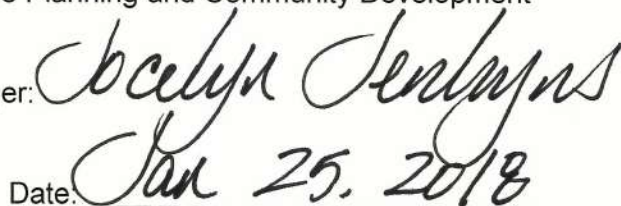 Planning and Community Development
er: Jocelyn Jenkyns
Date: Jan 25, 2018